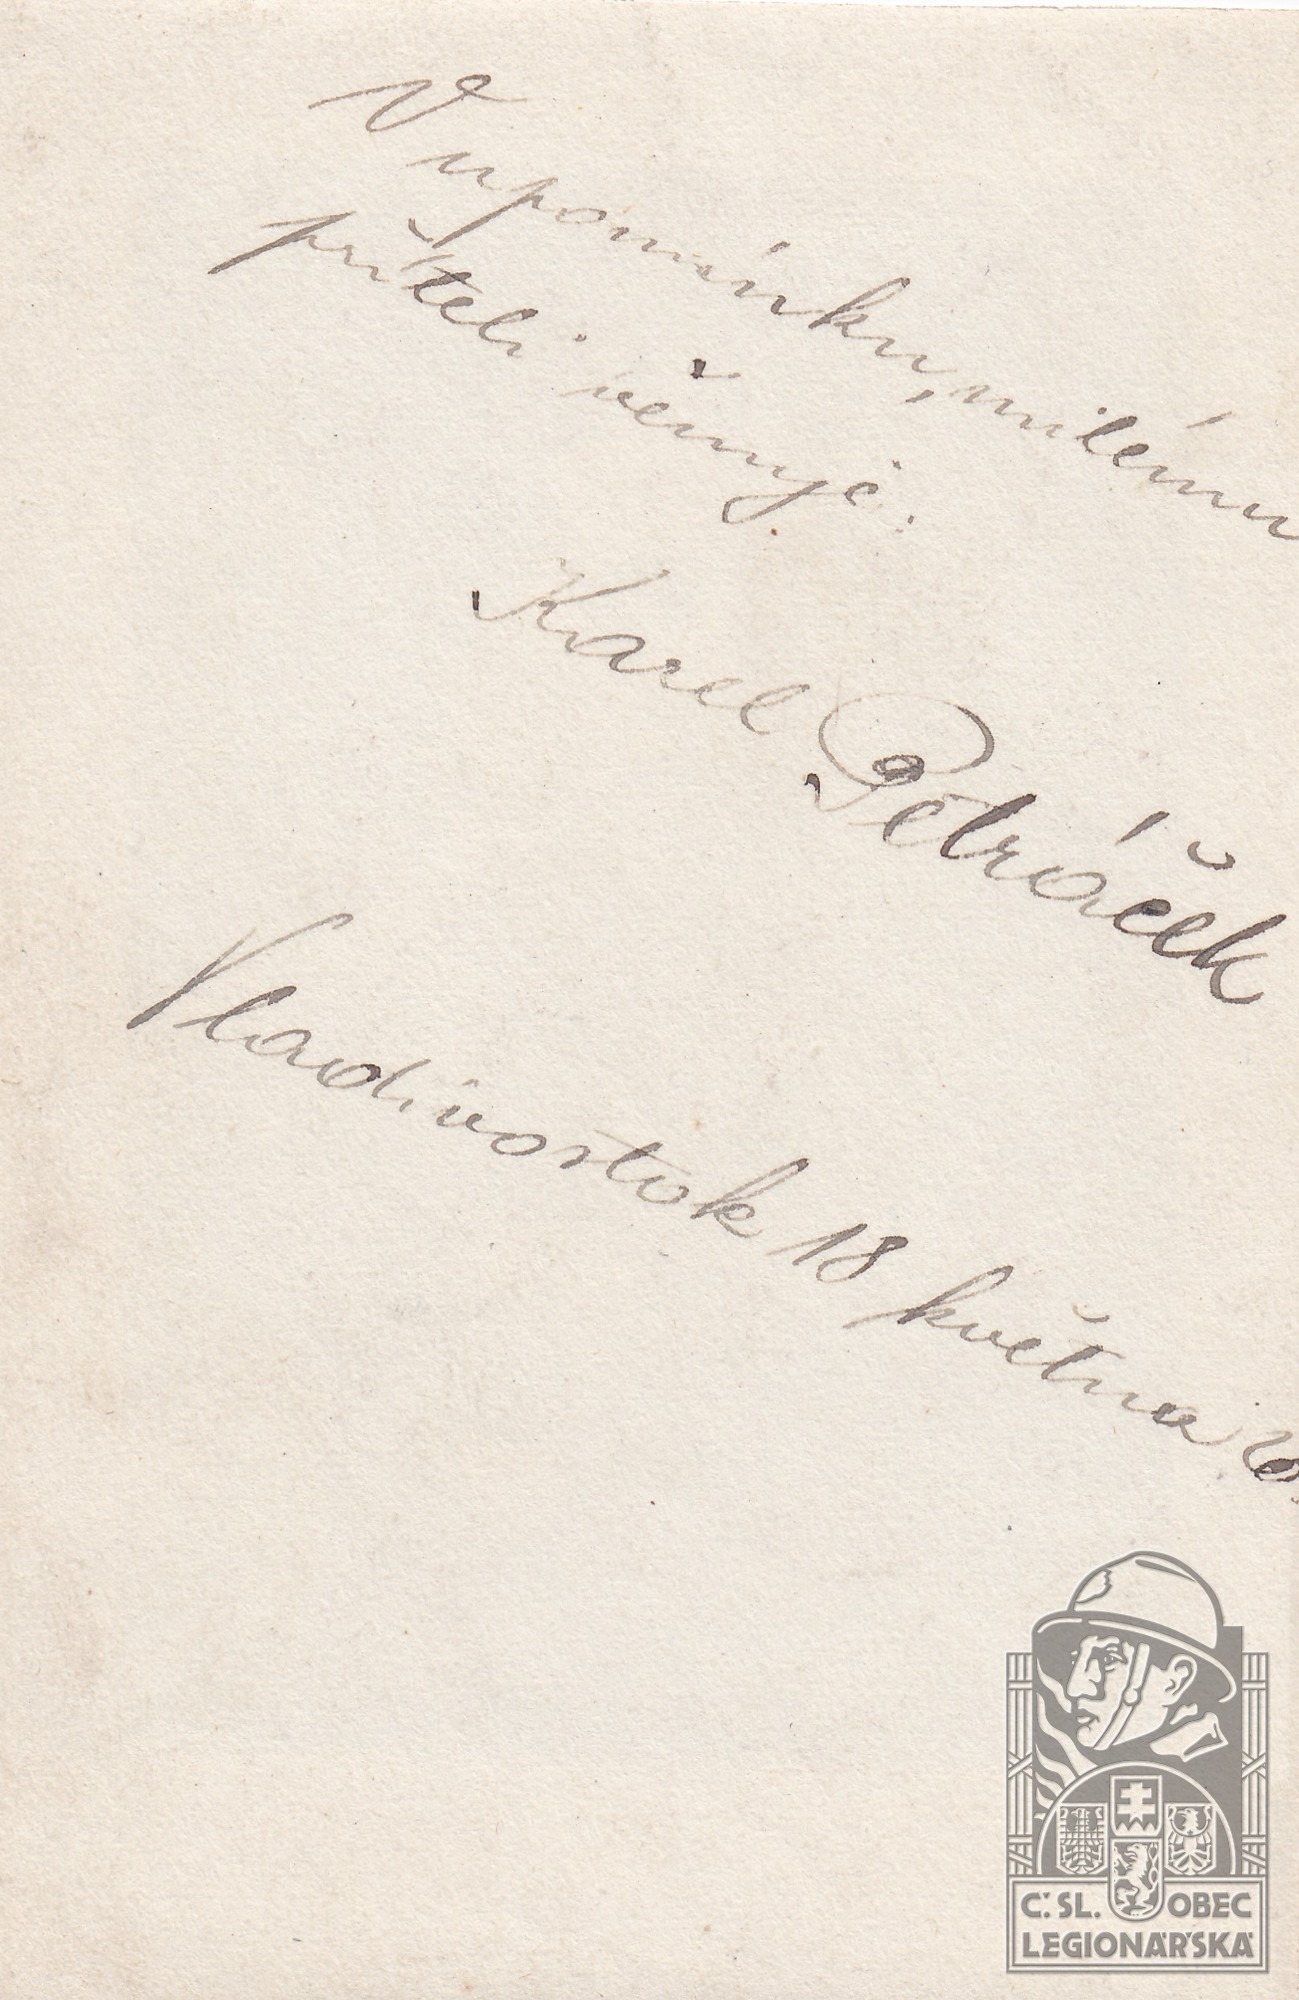 V upomínku, milému
příteli věnuje.
Karel Petráček
Vladivostok 18 května 20.
Č. SL. OBEC
LEGIONÁŘSKÁ